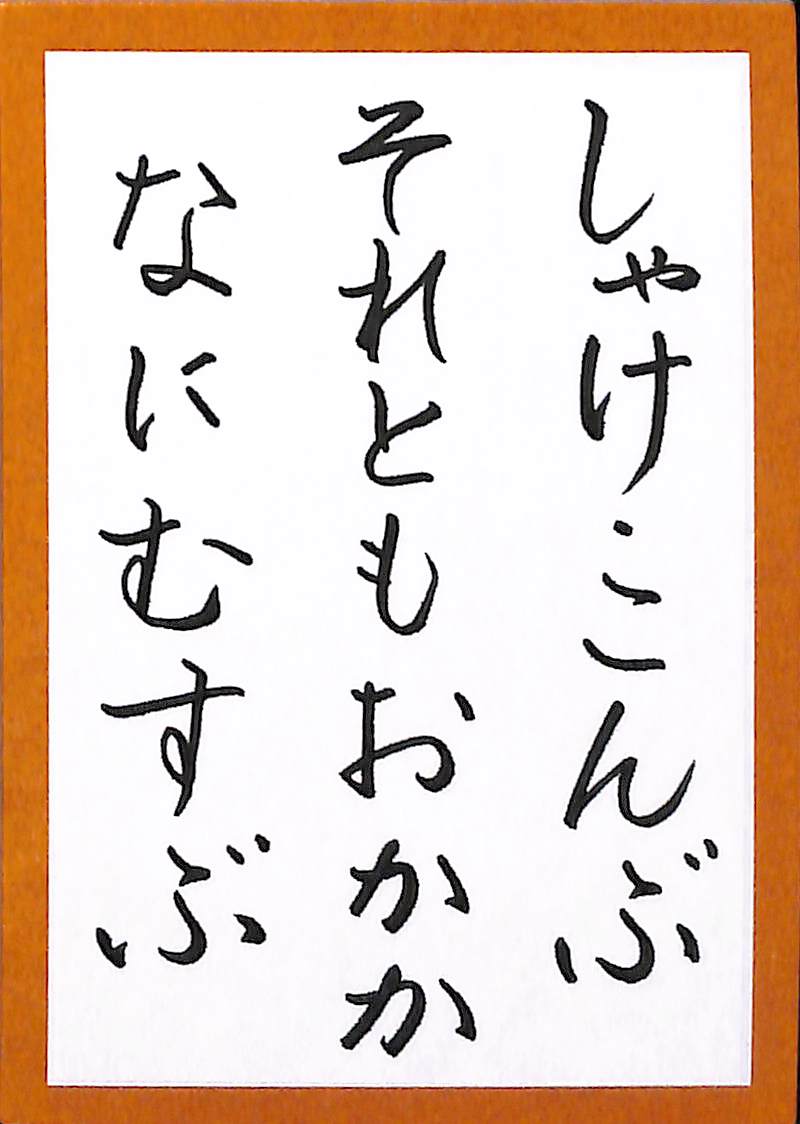 しゃけこんぶ
それともおかか
なにむすぶ